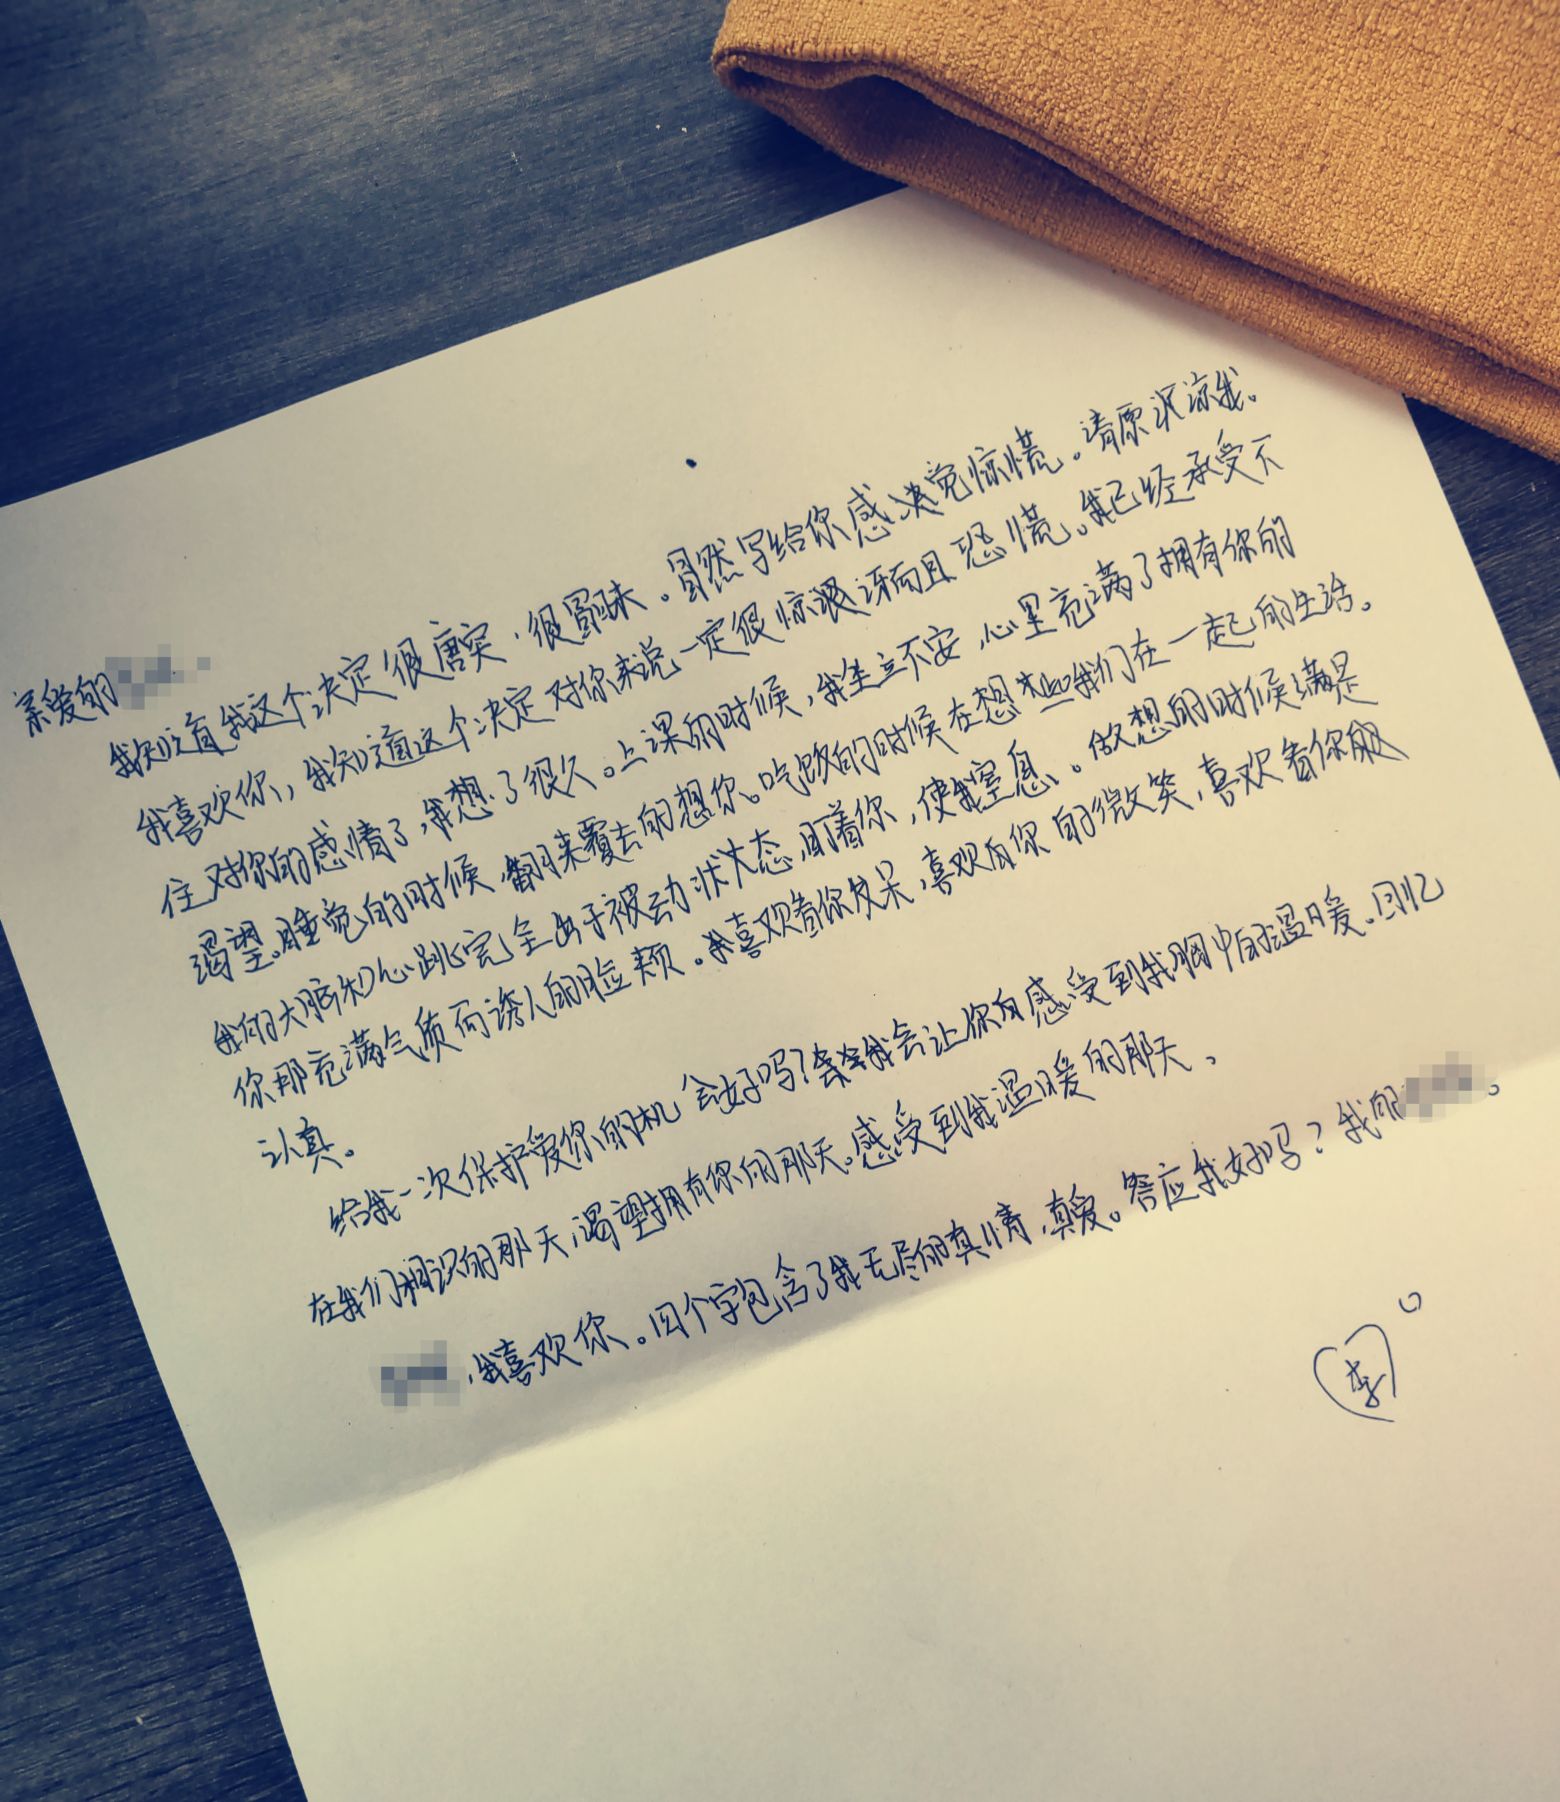 亲爱的
我知道我这个决定很唐突，很冒昧。冒然写给你感觉惊慌。请原谅我。
我喜欢你，我知道这个决定对你来说一定很惊讶而且恐慌。我已经承受不
住对你的感情了，我想了很久。上课的时候，我坐立不安，心里充满了拥有你的
渴望。睡觉的时候，翻来覆去的想你。吃饭的时候在想些我们在一起的生活。
我的大脑和心跳完全出于被动状态，盯着你，使我窒息。做想的时候满是
你那充满气质而诱人的脸颊。我喜欢看你发呆，喜欢你的微笑，喜欢看你
认真。
给我一次保护爱你的机会好吗？我会让你感受到我胸中的温暖。回忆
在我们相识的那天，渴望拥有你的那天。感受到我温暖的那天。
，我喜欢你。四个字包含了我无尽的真情，真爱。答应我好吗？我的。
李